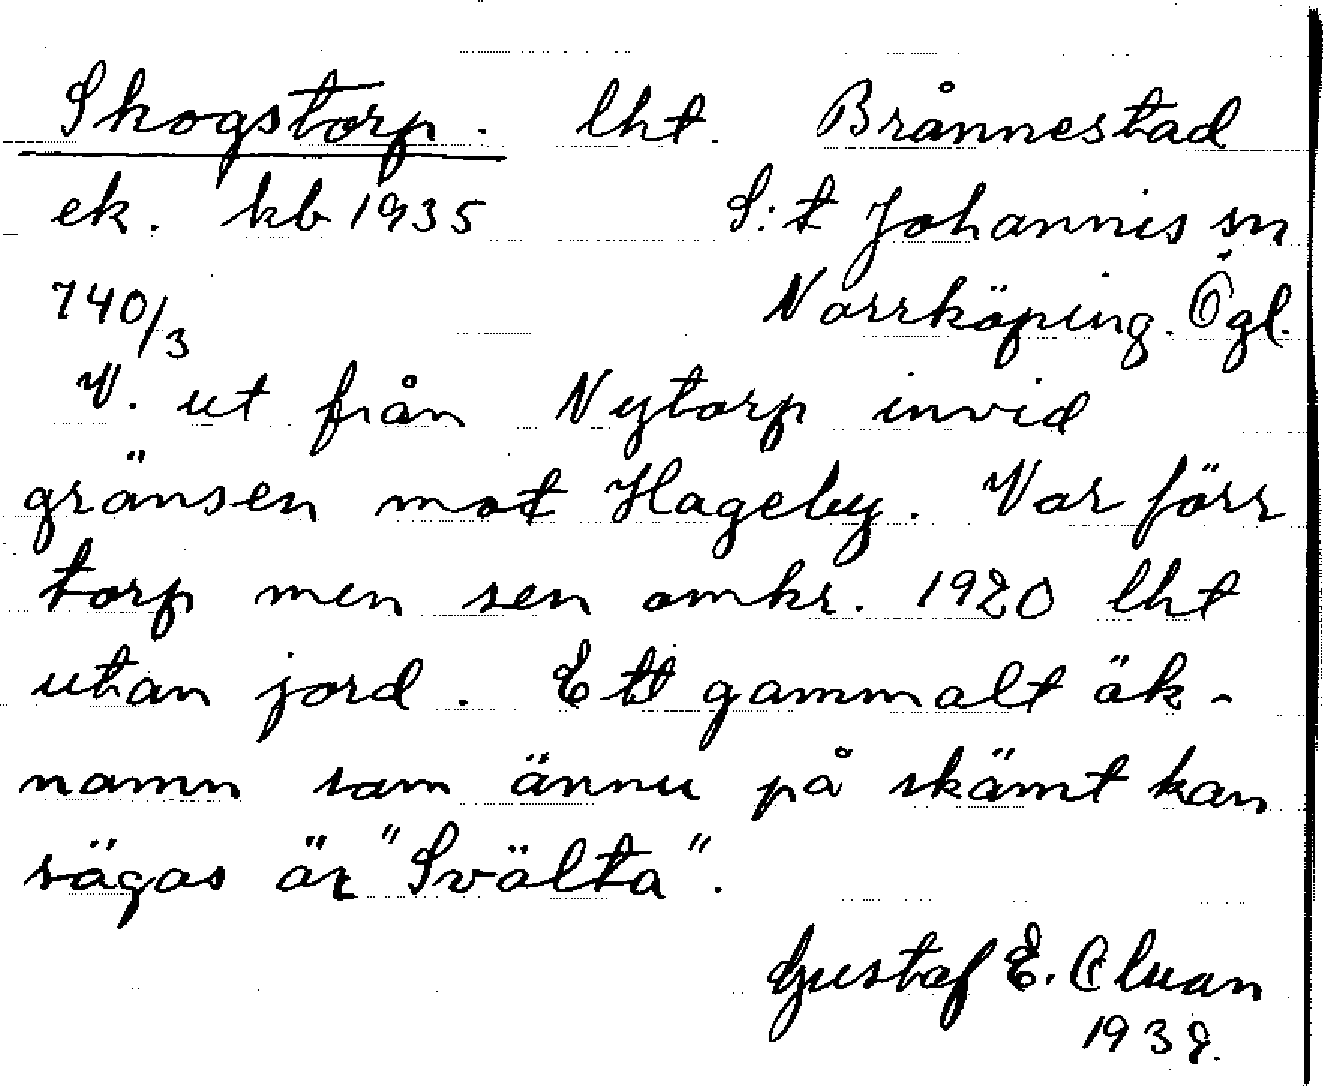 Skogstorp. lht. Brånnestad
ek. kb 1935 S:t Johannis sn
740/3 Norrköping. Ögl.
V. ut från Nytorp invid
gränsen mot Hageby. Var förr
torp men sen omkr. 1920 lht
utan jord. Ett gammalt ök-
namn som ännu på skämt kan
sägas är "Svälta".
Gustaf E.
1938.